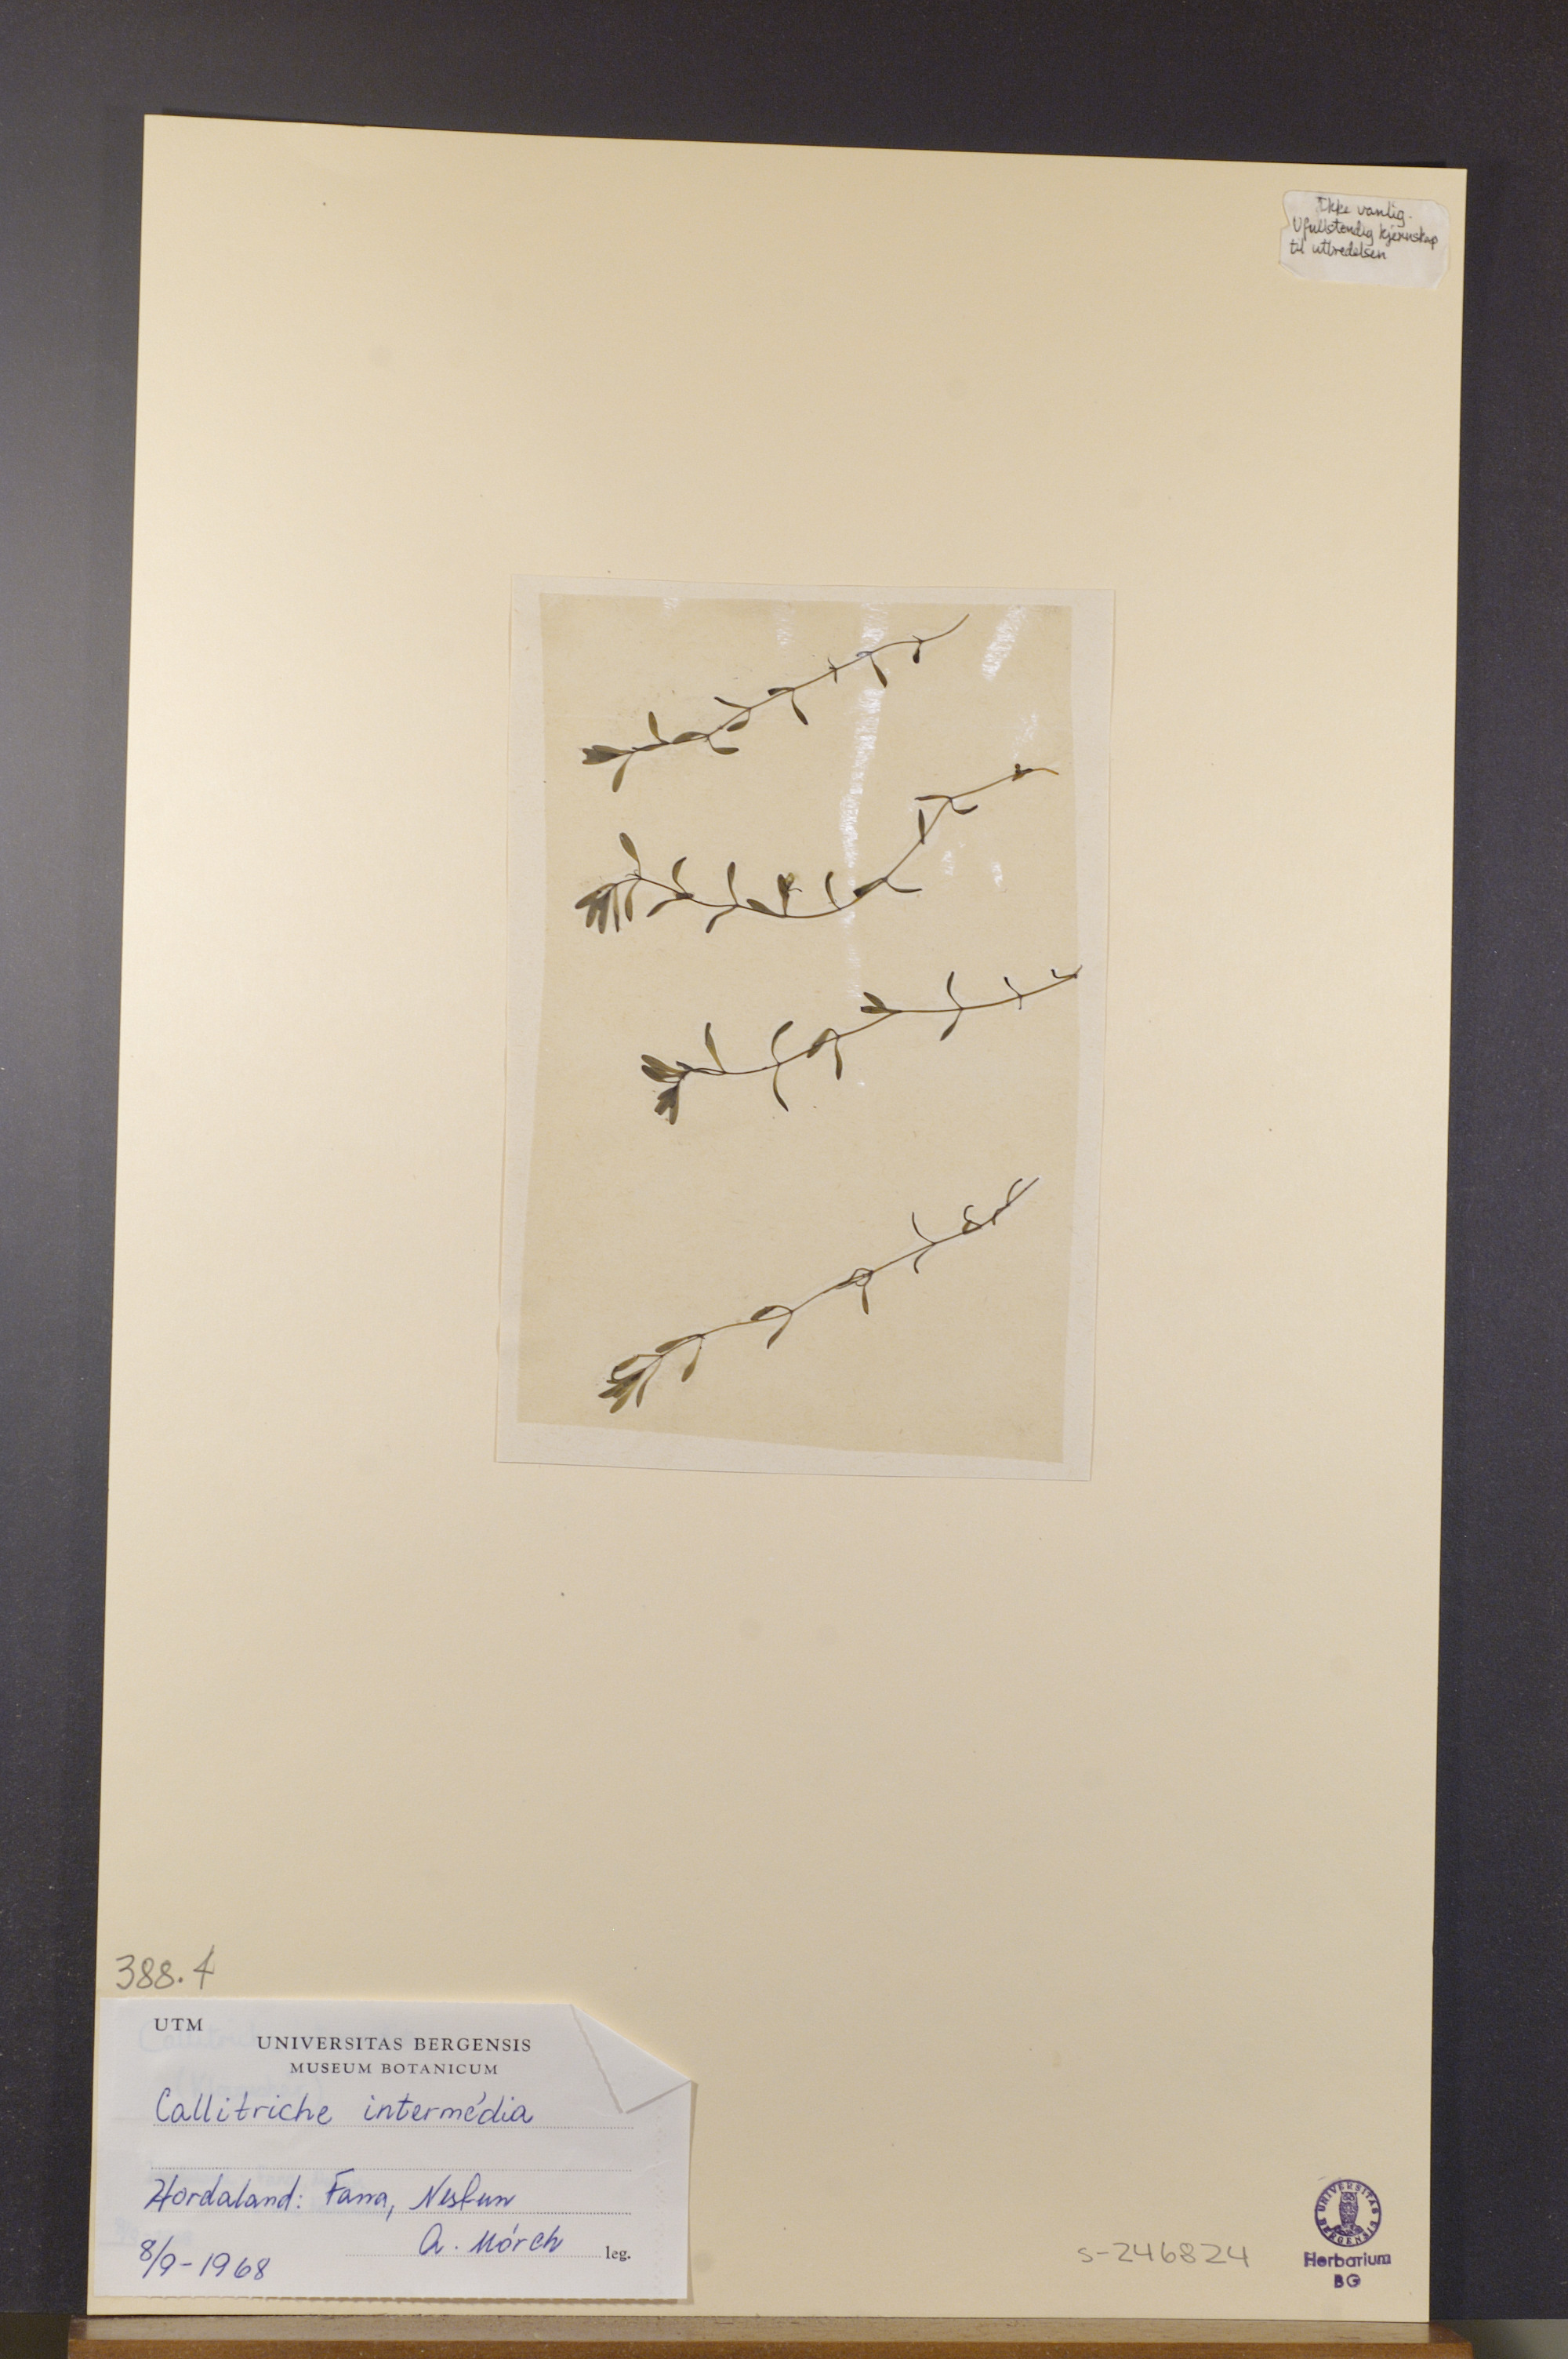 Ikke vanlig.
Ufullstendig kjennskap
til utbredelsen
388.4
UTM
UNIVERSITAS BERGENSIS
MUSEUM BOTANICUM
Callitriche intermédia
Hordaland: Fana, Nesttun
8/9-1968
A. Mórch leg.
S-246824
UNIVERSITAS BERGENSIS
Herbarium
BG